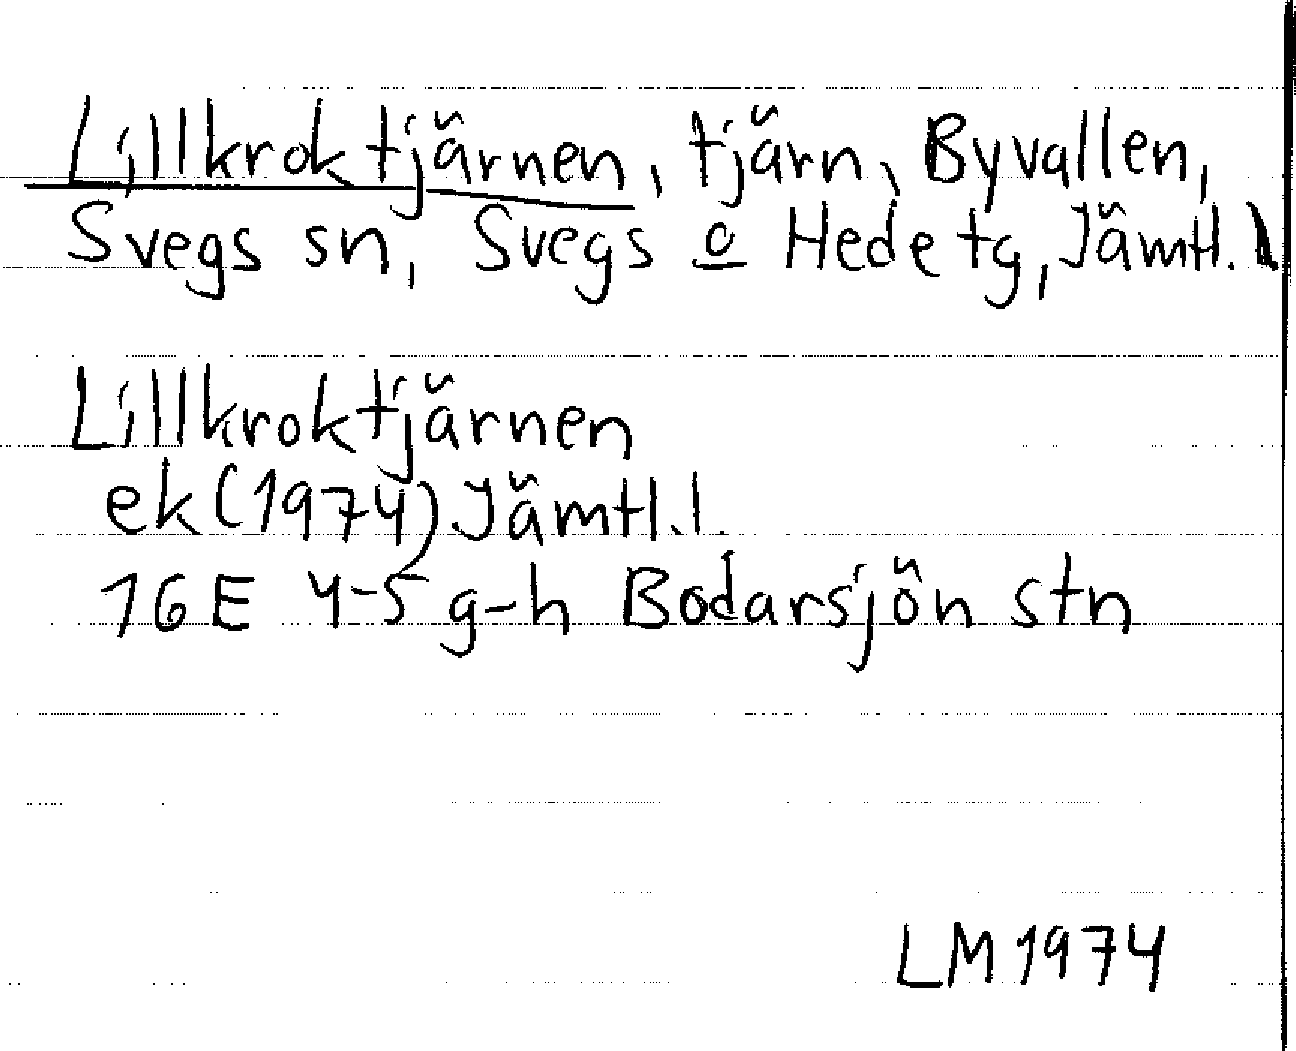 Lillkroktjärnen, tjärn, Byvallen,
Svegs sn, Svegs o Hede tg, Jämtl. l
Lillkroktjärnen
ek (1974) Jämtl. l.
16E 4-5 g-h Bodarsjön stn
LM 1974